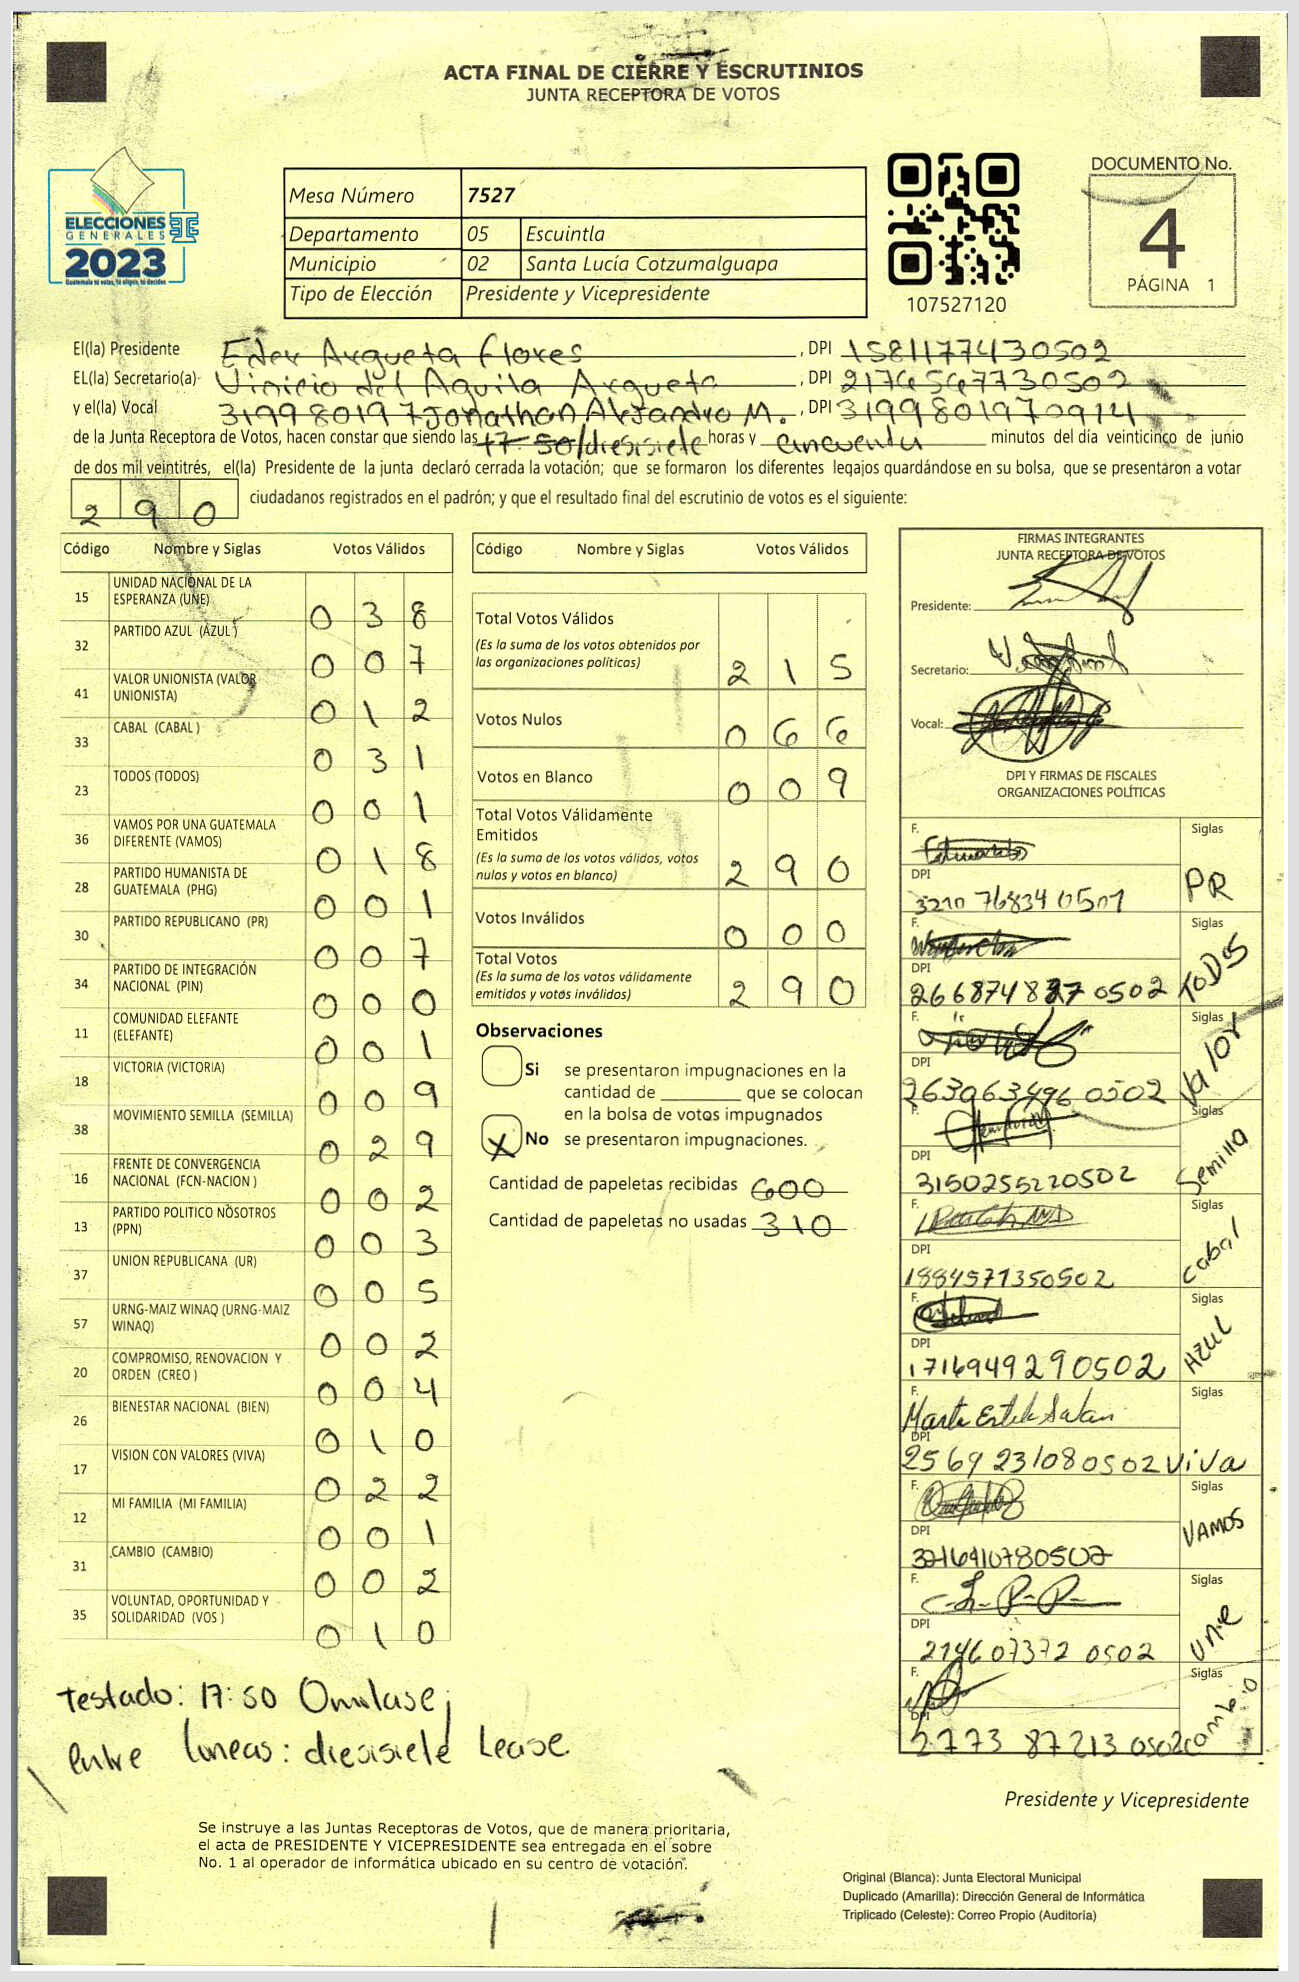 ACTA FINAL DE CIERRE Y ESCRUTINIOS
JUNTA RECEPTORA DE VOTOS
ELECCIONES
GENERALES
2023
Guatemala tú votas, tú eliges, tú decides
Mesa Número 7527
Departamento 05 Escuintla
Municipio 02 Santa Lucía Cotzumalguapa
Tipo de Elección Presidente y Vicepresidente
107527120
DOCUMENTO No.
4
PÁGINA 1
El(la) Presidente Eder Argueta Flores , DPI 1581177430502
EL(la) Secretario(a) Vinicio del Aguila Argueta , DPI 2174567730502
y el(la) Vocal 319980197 Jonathan Alejandro M. , DPI 3199801970914
de la Junta Receptora de Votos, hacen constar que siendo las 17:50/diesisiete horas y cincuenta minutos del día veinticinco de junio
de dos mil veintitrés, el(la) Presidente de la junta declaró cerrada la votación; que se formaron los diferentes legajos quardándose en su bolsa, que se presentaron a votar
290 ciudadanos registrados en el padrón; y que el resultado final del escrutinio de votos es el siguiente:
Código Nombre y Siglas Votos Válidos
15 UNIDAD NACIONAL DE LA ESPERANZA (UNE) 0 3 8
32 PARTIDO AZUL (AZUL) 0 0 7
41 VALOR UNIONISTA (VALOR UNIONISTA) 0 1 2
33 CABAL (CABAL) 0 3 1
23 TODOS (TODOS) 0 0 1
36 VAMOS POR UNA GUATEMALA DIFERENTE (VAMOS) 0 1 8
28 PARTIDO HUMANISTA DE GUATEMALA (PHG) 0 0 1
30 PARTIDO REPUBLICANO (PR) 0 0 7
34 PARTIDO DE INTEGRACIÓN NACIONAL (PIN) 0 0 0
11 COMUNIDAD ELEFANTE (ELEFANTE) 0 0 1
18 VICTORIA (VICTORIA) 0 0 9
38 MOVIMIENTO SEMILLA (SEMILLA) 0 2 9
16 FRENTE DE CONVERGENCIA NACIONAL (FCN-NACION) 0 0 2
13 PARTIDO POLITICO NOSOTROS (PPN) 0 0 3
37 UNION REPUBLICANA (UR) 0 0 5
57 URNG-MAIZ WINAQ (URNG-MAIZ WINAQ) 0 0 2
20 COMPROMISO, RENOVACION Y ORDEN (CREO) 0 0 4
26 BIENESTAR NACIONAL (BIEN) 0 1 0
17 VISION CON VALORES (VIVA) 0 2 2
12 MI FAMILIA (MI FAMILIA) 0 0 1
31 CAMBIO (CAMBIO) 0 0 2
35 VOLUNTAD, OPORTUNIDAD Y SOLIDARIDAD (VOS) 0 1 0
Testado: 17:50 Omitase;
Entre lineas: diesisiete Lease.
Código Nombre y Siglas Votos Válidos
Total Votos Válidos 2 1 5
(Es la suma de los votos obtenidos por
las organizaciones políticas)
Votos Nulos 0 6 6
Votos en Blanco 0 0 9
Total Votos Válidamente
Emitidos 2 9 0
(Es la suma de los votos válidos, votos
nulos y votos en blanco)
Votos Inválidos 0 0 0
Total Votos 2 9 0
(Es la suma de los votos válidamente
emitidos y votos inválidos)
Observaciones
Si se presentaron impugnaciones en la
cantidad de ________ que se colocan
en la bolsa de votos impugnados
X No se presentaron impugnaciones.
Cantidad de papeletas recibidas 600
Cantidad de papeletas no usadas 310
FIRMAS INTEGRANTES
JUNTA RECEPTORA DE VOTOS
Presidente:
Secretario:
Vocal:
DPI Y FIRMAS DE FISCALES
ORGANIZACIONES POLÍTICAS
F. Siglas PR
DPI 3210768340501
F. Siglas TODOS
DPI
F. Siglas Valor
DPI 2630634960502
F. Siglas Semilla
DPI 3150255220502
F. Siglas Cabal
DPI 1884571350502
F. Siglas AZUL
DPI 1716949290502
F. Siglas viva
DPI 2569231080502
F. Siglas VAMOS
DPI
F. Siglas UNE
DPI 2146073720502
F. Siglas Cambio
DPI 2773872130502
Presidente y Vicepresidente
Se instruye a las Juntas Receptoras de Votos, que de manera prioritaria,
el acta de PRESIDENTE Y VICEPRESIDENTE sea entregada en el sobre
No. 1 al operador de informática ubicado en su centro de votación.
Original (Blanca): Junta Electoral Municipal
Duplicado (Amarilla): Dirección General de Informática
Triplicado (Celeste): Correo Propio (Auditoría)